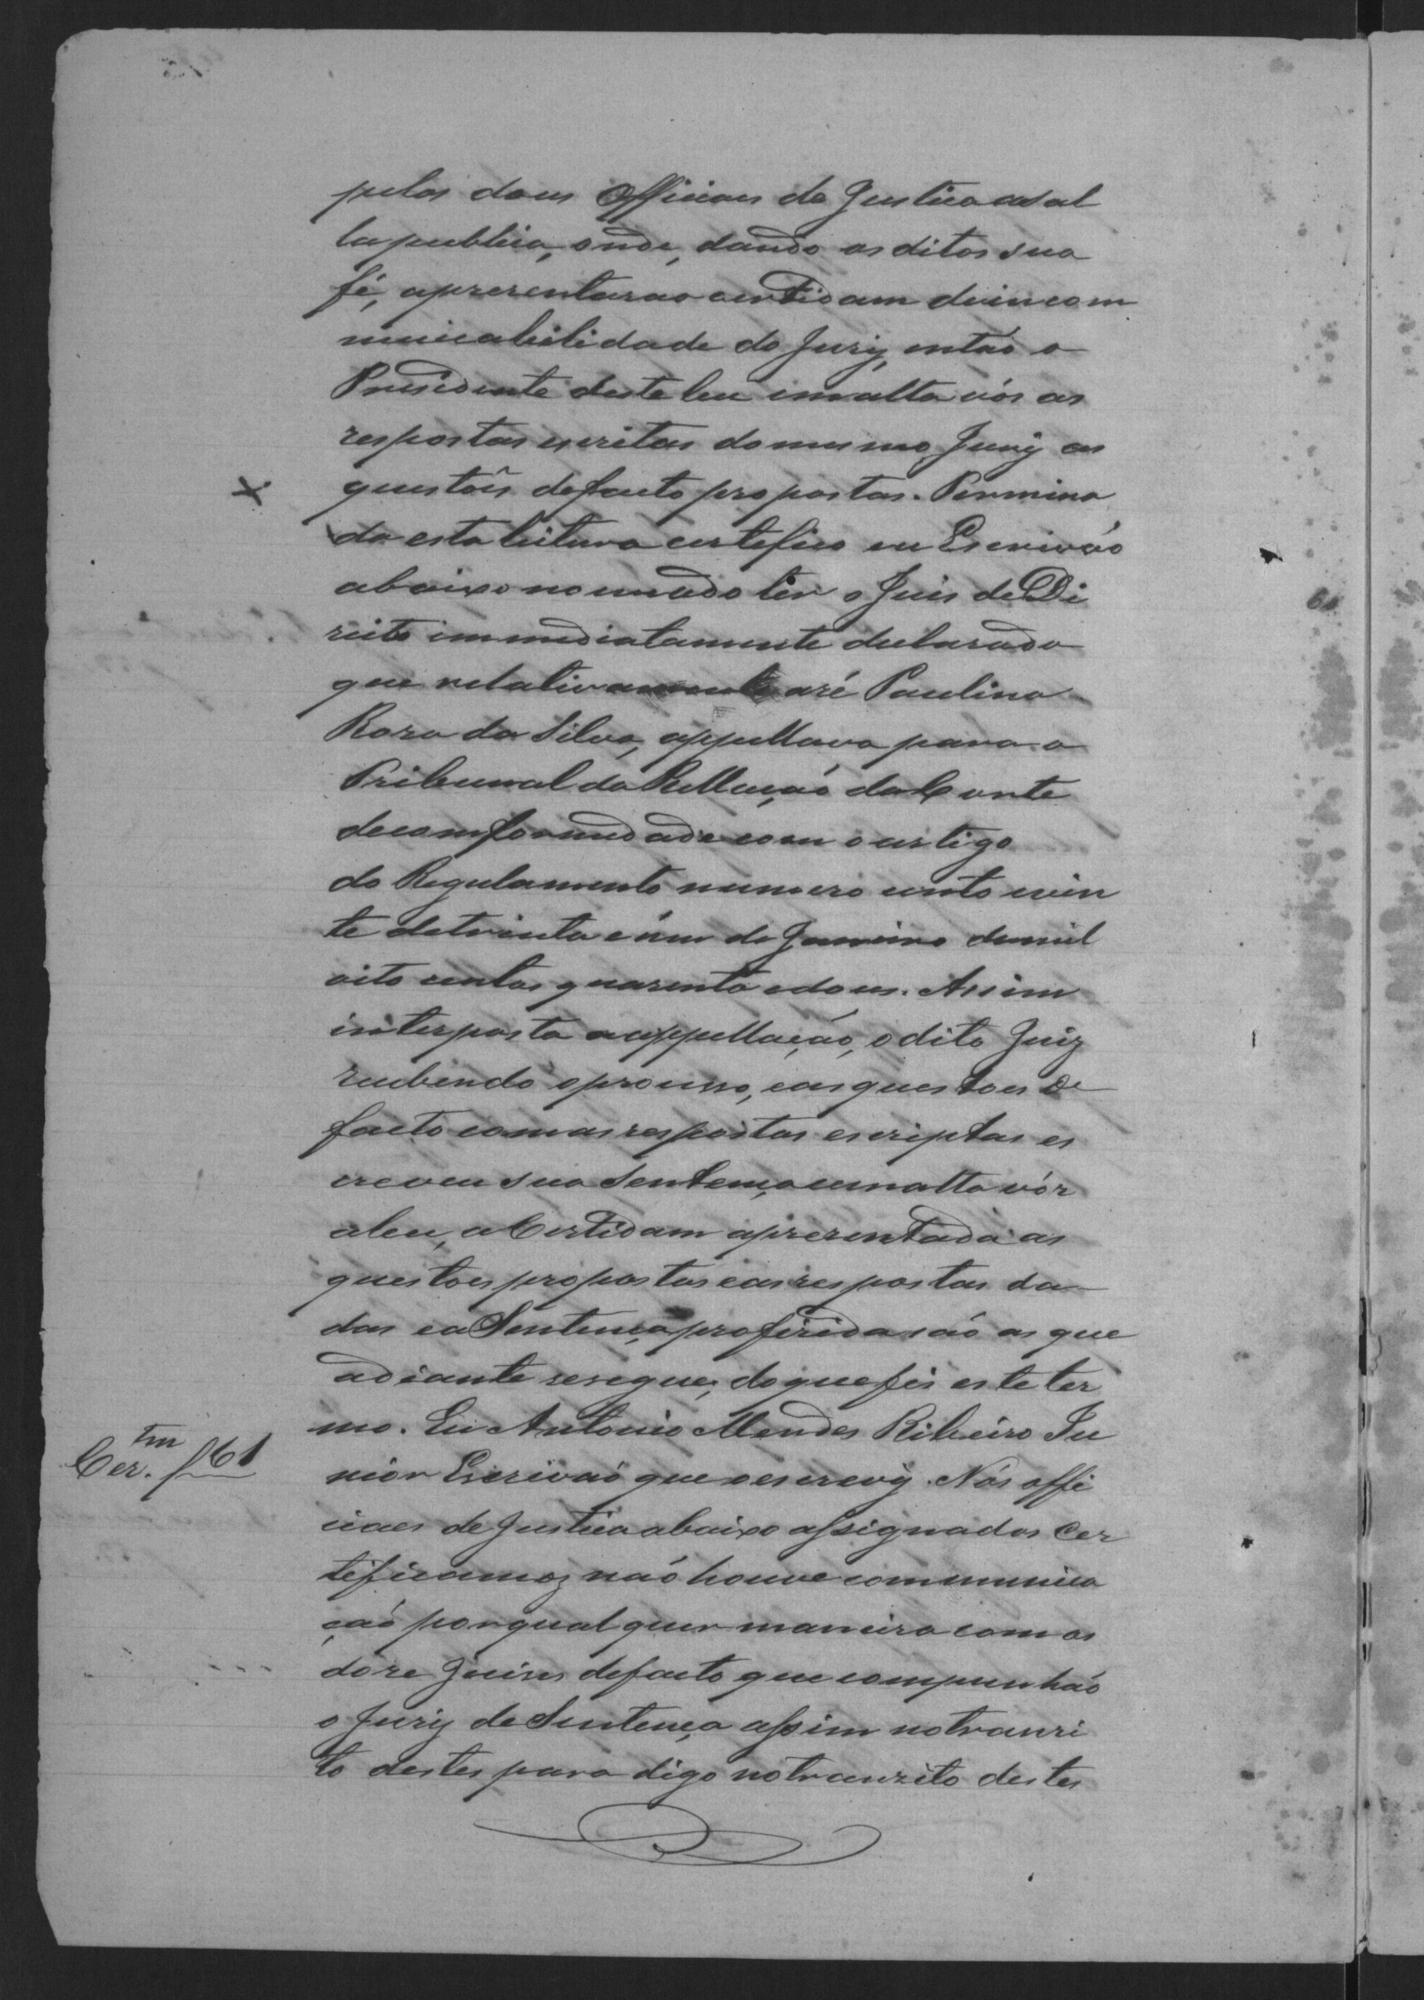 pelos dous Officiaes de Justica a sal
la publica, onde, dando os ditos sua
fé, apresentarao certidam de incom
municabilidade do Jury, então o
Presidente deste leu em alta vós as
respostas escritas do mesmo Jury as
questões de facto propostas. Termina
da esta leitura certefico eu Escrivão
abaixo nomeado ter o Juis de Di
reito immediatamente declarado
que relativamente a ré Paulina
Rosa da Silva, appellava para o
Tribunal da Rellação da Corte
de comformidade com o artigo
do Regulamento numero cento e vin
te de trinta e úm de Janeiro de mil
oito centos quarenta e dous. Assim
interposta a appellação, o dito Juiz
recebendo o processo, e as questoes de
facto com as respostas escriptas es
creveu sua Sentença e em alta vós
a leu, a Certidam apresentada as
questoes propostas e as respostas da
das e a Sentença proferida são as que
adiante se segue; do que fis este ter
mo. Eu Antonio Mendes Ribeiro Ju
nior Escrivaó que o escrevy. Nós offi
Cer.tm f 61
ciaes de Justica abaixo assignados Cer
tificamos naó houve communica
caó por qual quer maneira com os
doze Juises de facto que compunhaó
o Jury de Sentença assim no tranzi
to destes para digo no tranzito destes